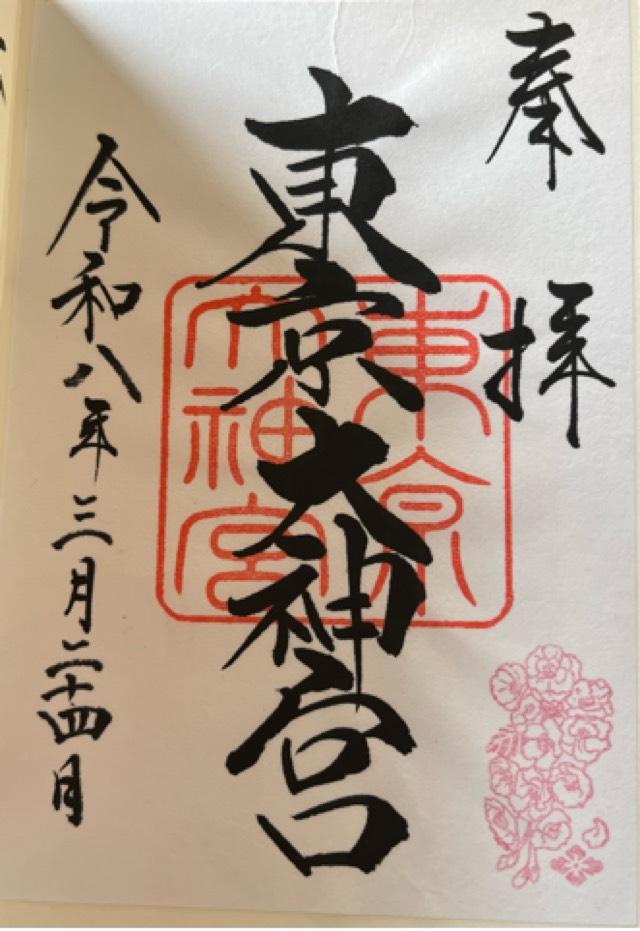 奉拝
東京大神宮
東京
大神宮
令和八年三月二十四日